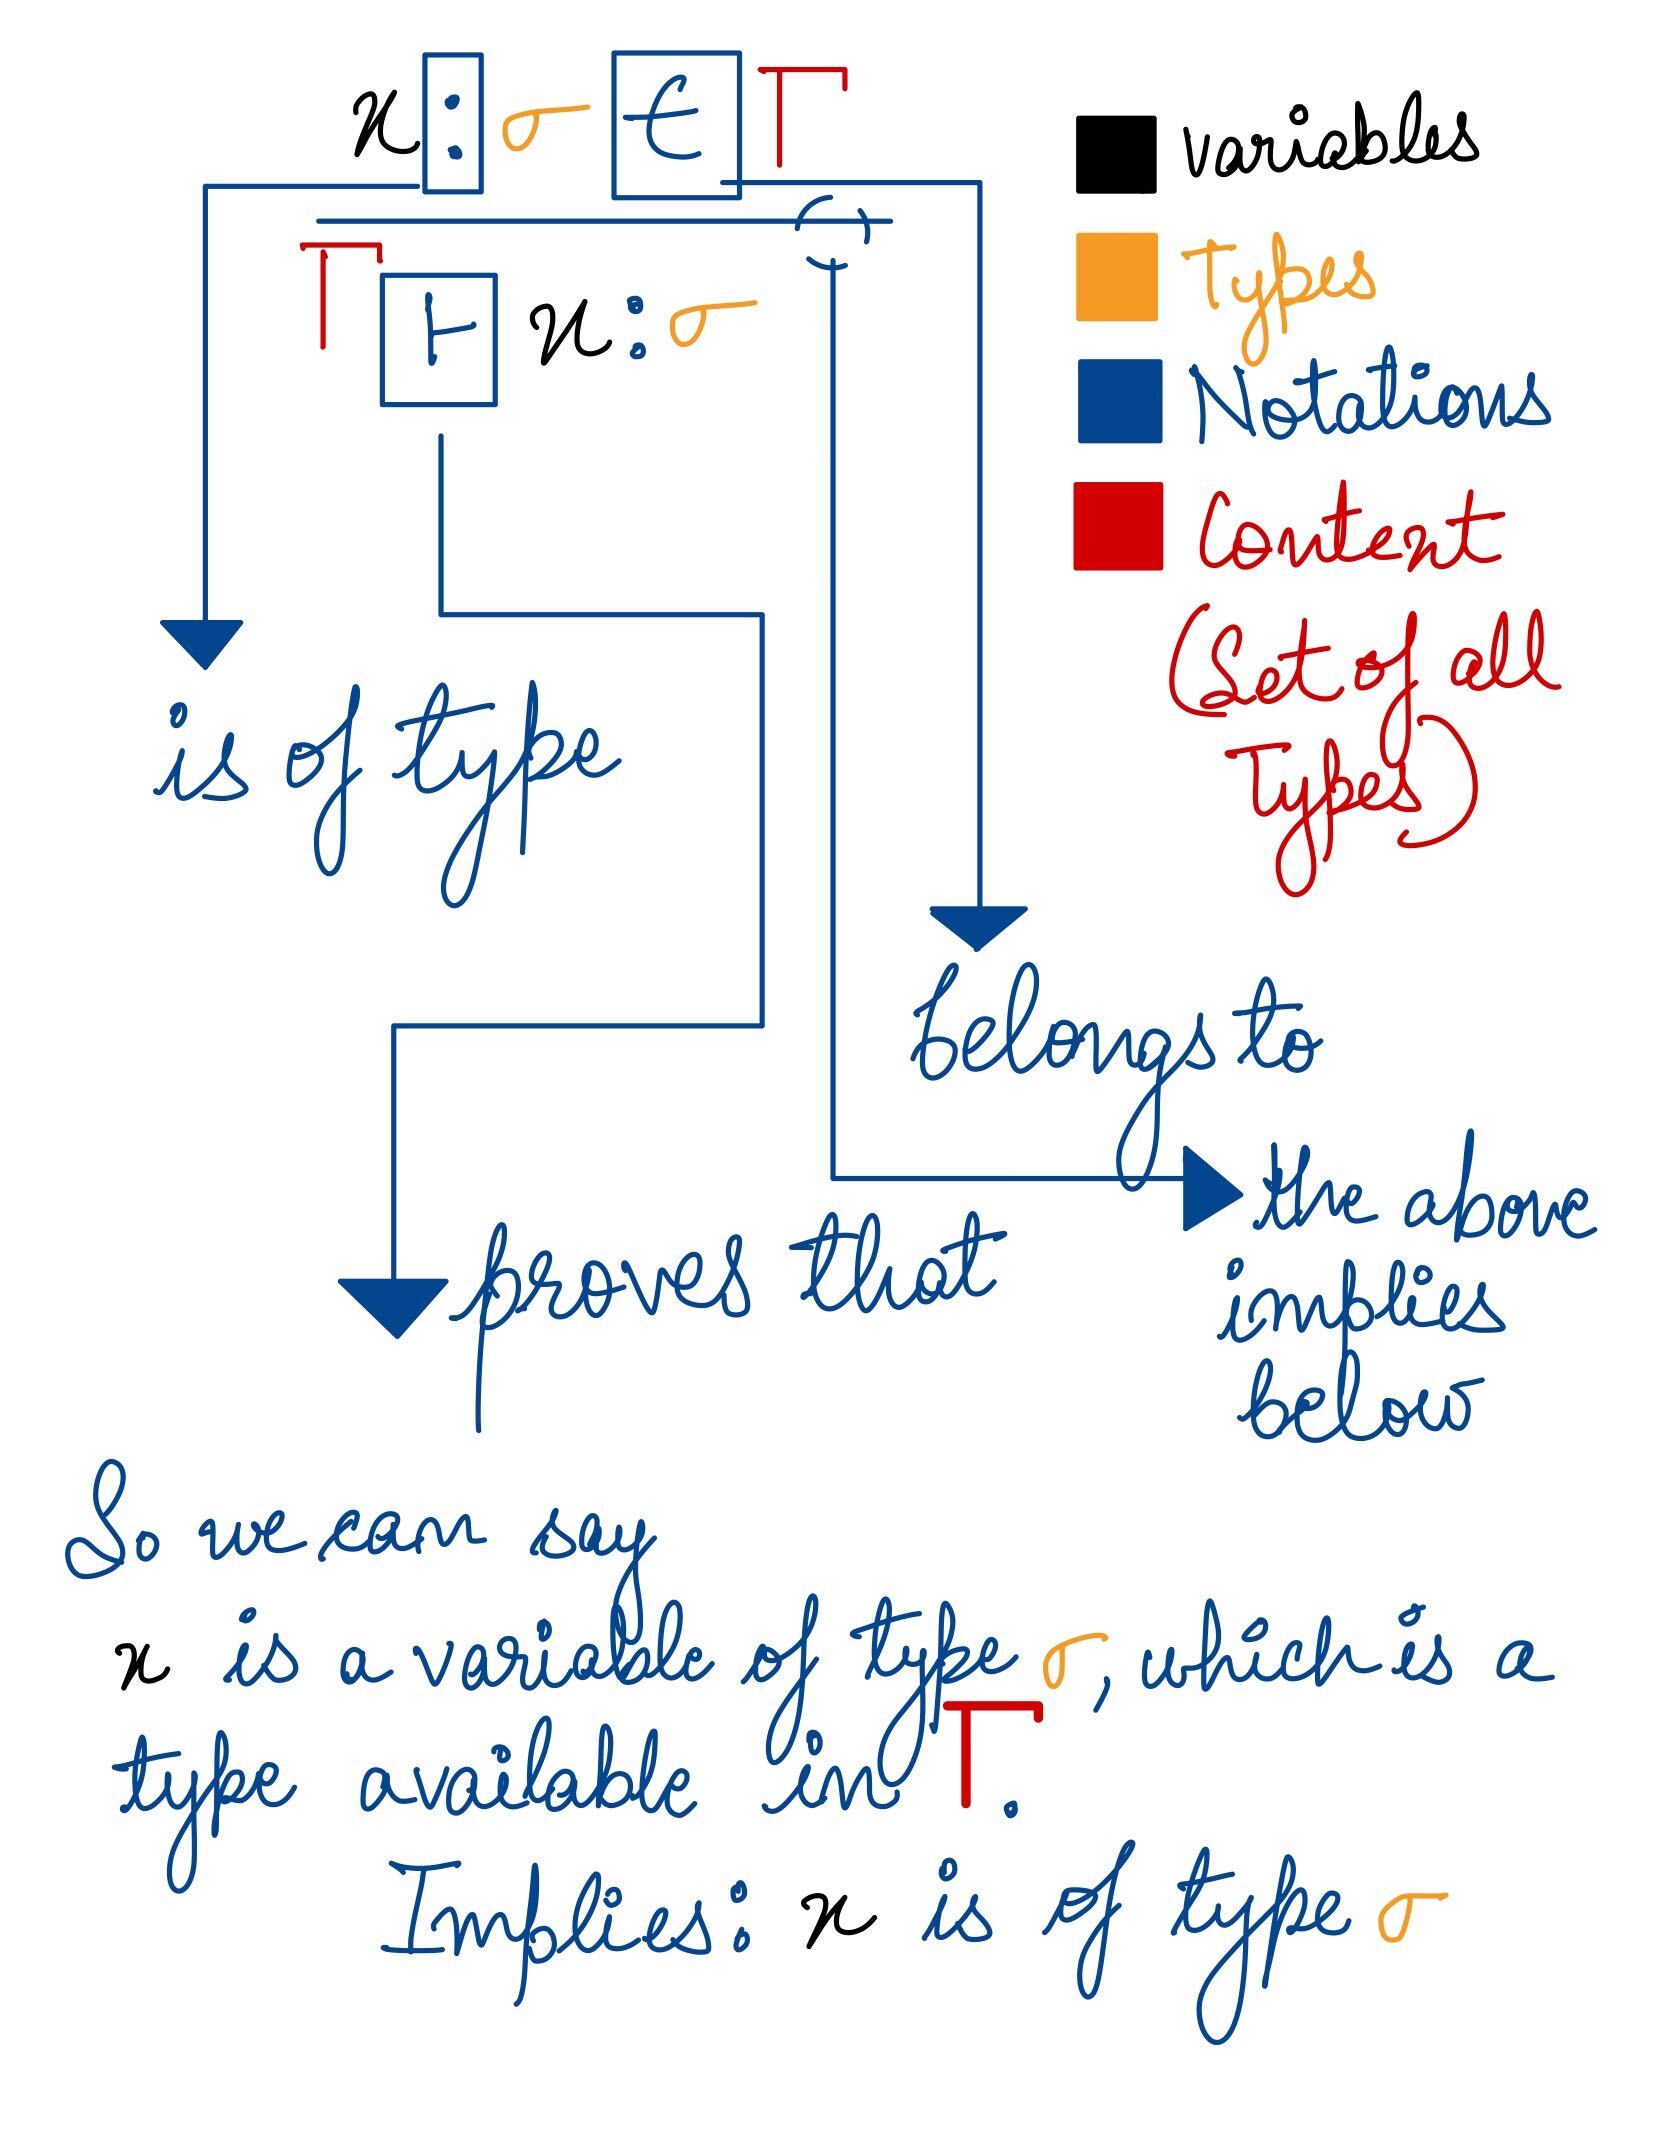 x : σ ∈ Γ
Γ ⊢ x : σ
variables
Types
Notations
Content
(Set of all
Types)
is of type
belongs to
the above
implies
below
proves that
So we can say
x is a variable of type σ, which is a
type available in Γ.
Implies: x is of type σ